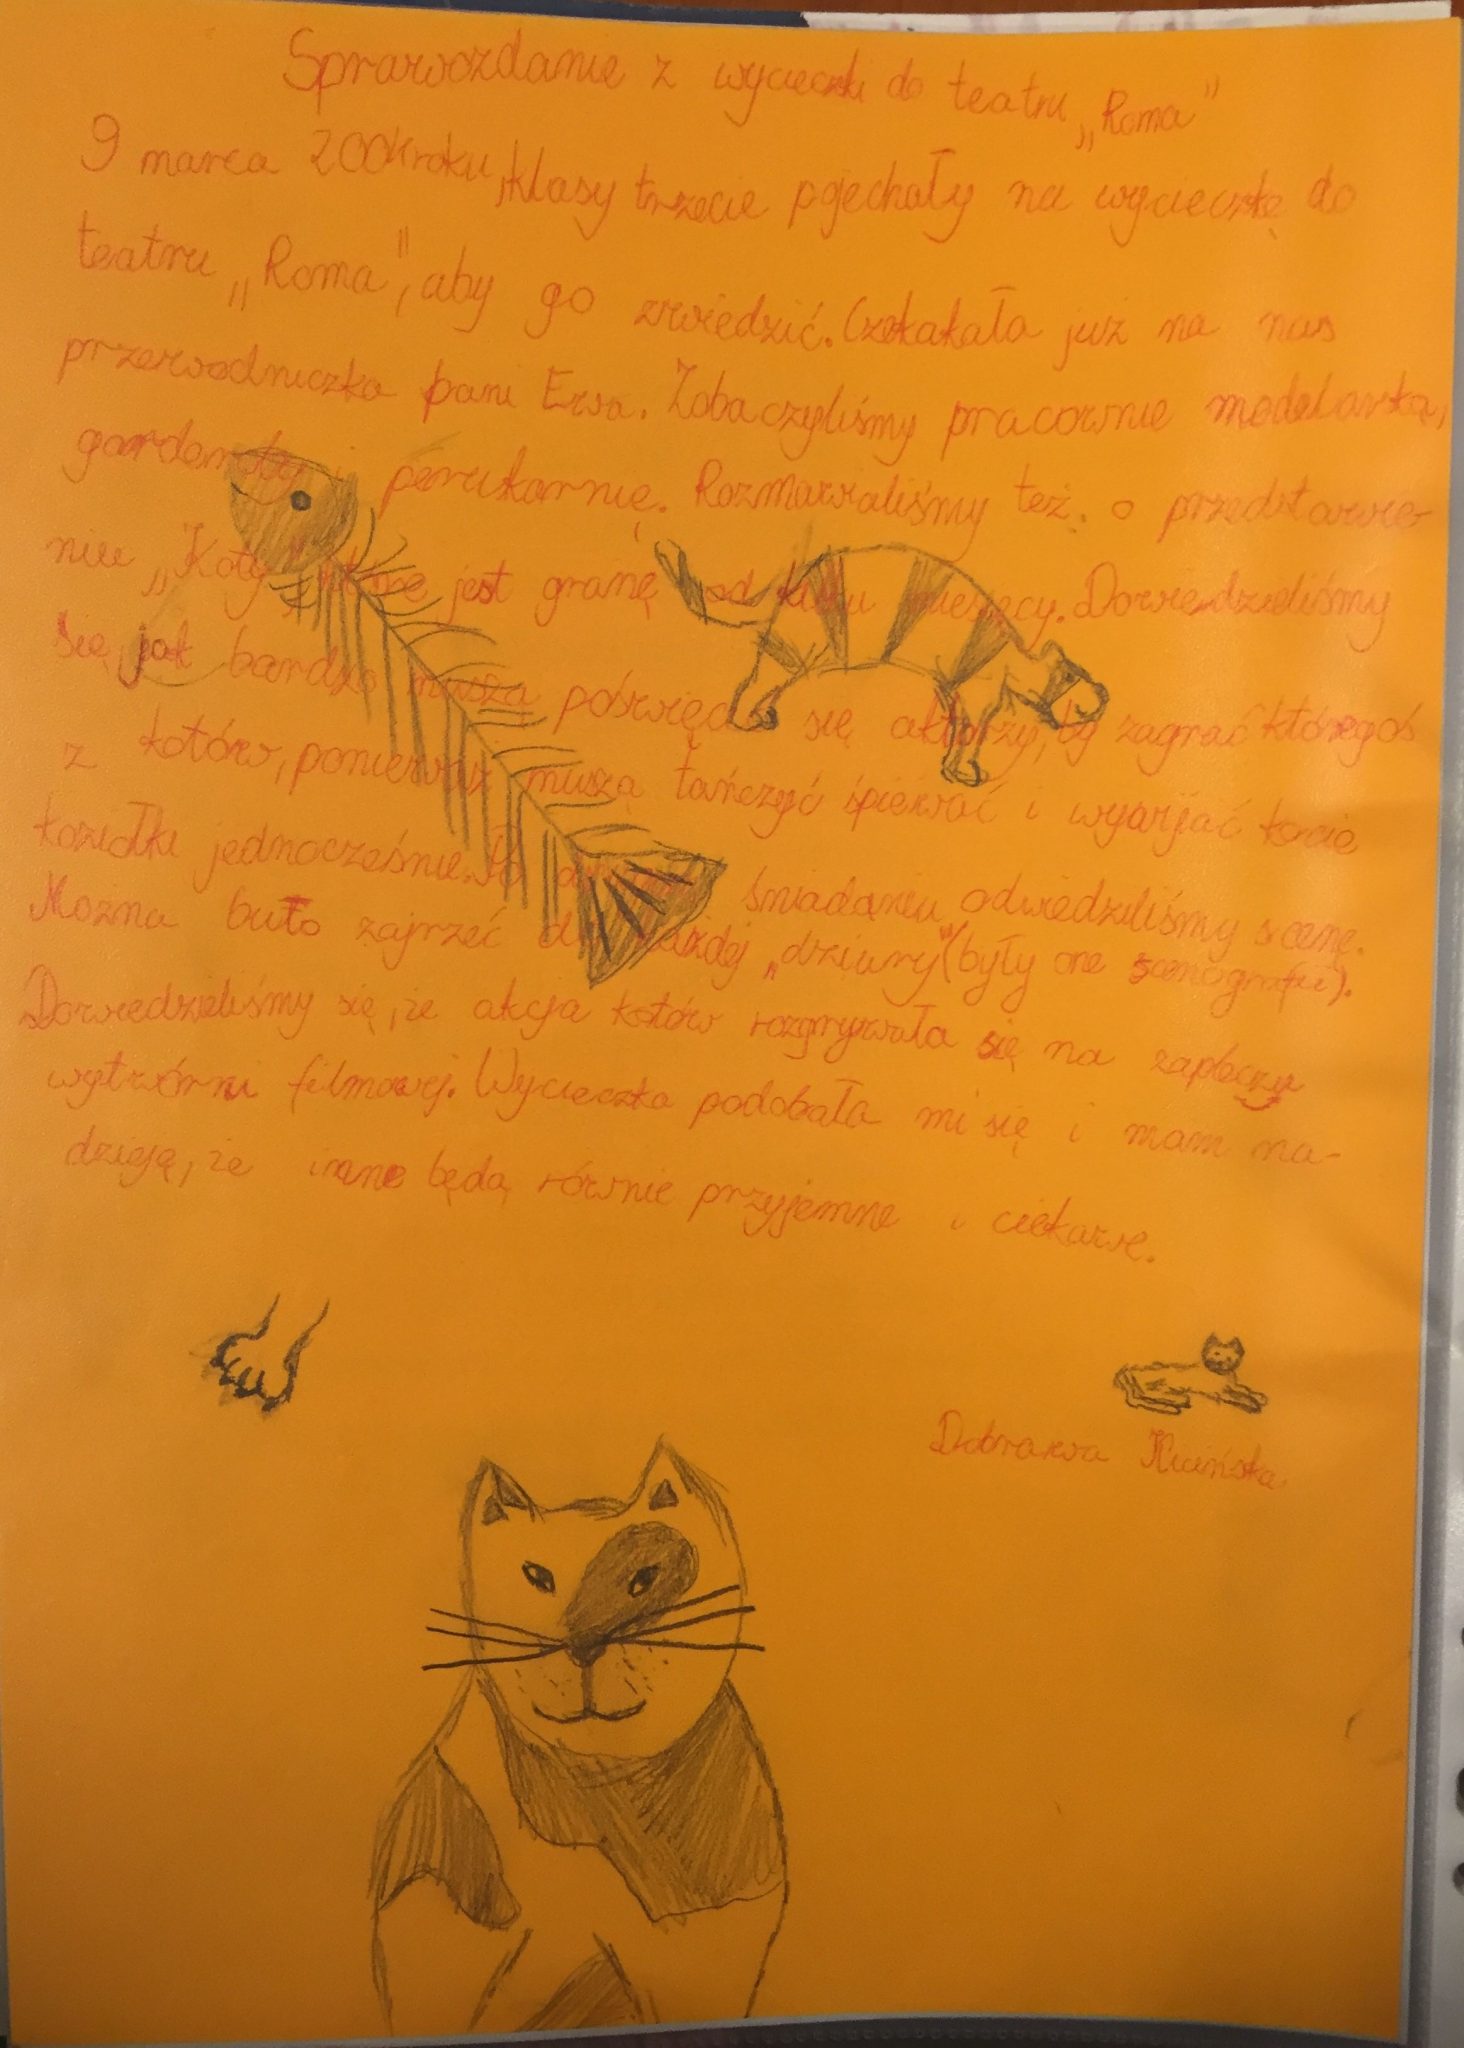 Sprawozdanie z wycieczki do teatru „Roma"
9 marca 2004roku, klasy trzecie pojechały na wycieczkę do
teatru „Roma", aby go zwiedzić. Czekakała już na nas
przewodniczka pani Ewa. Zobaczyliśmy pracownie modelarską,
garderoby i perukarnię. Rozmawialiśmy też o przedstawie-
niu „Koty" które jest granę od kilku miesięcy. Dowiedzieliśmy
się, jak bardzo muszą poświęcać się aktorzy, by zagrać któregoś
z kotów, ponieważ muszą tańczyć śpiewać i wywijać kocie
koziołki jednocześnie. Po drugim śniadaniu odwiedziliśmy scenę.
Mozna buło zajrzeć do każdej „dziury" (były one scenografii).
Dowiedzieliśmy się, że akcja kotów rozgrywała się na zapleczu
wytwórni filmowej. Wycieczka podobała mi się i mam na-
dzieję, że inne będą równie przyjemne i ciekawe.
Dobrawa